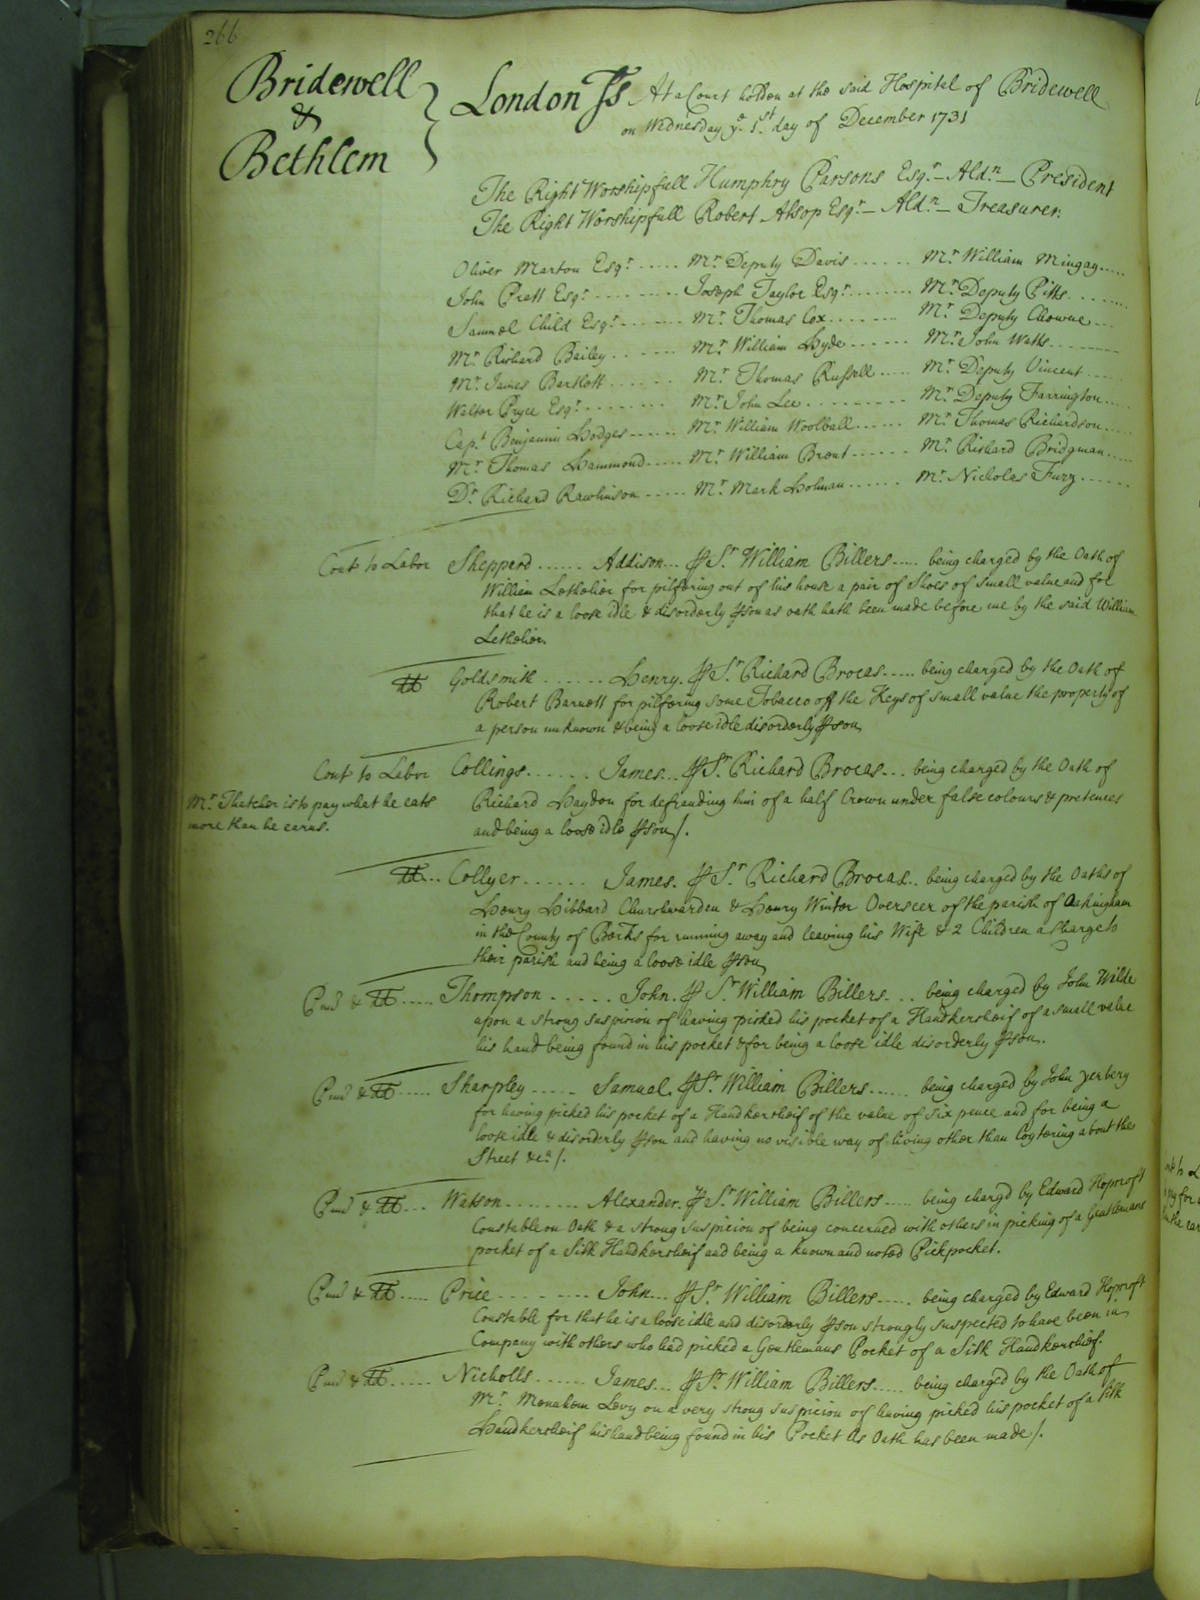 266
Bridewell
&
Bethlem
London Ss At a Court holden at the said Hospital of Bridewell
on Wednesday ye 1st day of December 1731
The Right Worshipfull Humphry Parsons Esqr Aldn President
The Right Worshipfull Robert Alsop Esqr Aldn Treasurer.
Oliver Marton Esqr ..... Mr Deputy Davis ...... Mr William Mingay.....
John Prett Esqr ......... Joseph Taylor Esqr ........ Mr Deputy Pitts........
Samuel Child Esqr ...... Mr Thomas Cox ........ Mr Deputy Chowne ...
Mr Richard Bailey ...... Mr William Hyde ...... Mr John Watts ........
Mr James Bartlett ...... Mr Thomas Russell ..... Mr Deputy Vincent ....
Walter Pryce Esqr ........ Mr John Lee ......... Mr Deputy Farrington ....
Capt Benjamin Hodges ...... Mr William Woolball ...... Mr Thomas Richardson .....
Mr Thomas Hammond ..... Mr William Brent ...... Mr Richard Bridgman .....
Dr Richard Rawlinson ..... Mr Mark Holman ...... Mr Nicholas Fury ......
Cont to Labor Sheppard ...... Addison... ⅌ Sr William Billers ..... being charged by the Oath of
William Lethelier for pilfering out of his house a pair of Shoes of small value and for
that he is a loose idle & disorderly ⅌son as oath hath been made before me by the said William
Lethelier.
Goldsmith ...... Henry. ⅌ Sr Richard Brocas ..... being charged by the Oath of
Robert Barnett for pilfering some Tobacco off the Keys of small value the property of
a person unknown & being a loose idle disorderly ⅌son
Cont to Labor Collings ...... James... ⅌ Sr Richard Brocas ... being charged by the Oath of
Mr Thatcher is to pay what he eats
more than he earns.
Richard Haydon for defrauding him of a half Crown under false colours & pretences
and being a loose idle ⅌son/.
Collyer ...... James. ⅌ Sr Richard Brocas.. being charged by the Oaths of
Henry Hibbard Churchwarden & Henry Winter Overseer of the parish of Oakingham
in the County of Berks for running away and leaving his Wife & 2 Children a Charge to
their parish and being a loose idle ⅌son
Thompson ...... John. ⅌ Sr William Billers ... being charged by John Wilde
upon a strong suspicion of having picked his pocket of a Handkercheif of a small value
his hand being found in his pocket & for being a loose idle disorderly ⅌son.
Sharpley ..... Samuel. ⅌ Sr William Billers ...... being charged by John Yerbery
for having picked his pocket of a Handkercheif of the value of Six pence and for being a
loose idle & disorderly ⅌son and having no visible way of living other than Loytering about the
Street &ca/.
Watson ........ Alexander. ⅌ Sr William Billers ..... being chargd by Edward Hopcroft
Constable on Oath & a strong suspicion of being concerned with others in picking of a Gentlemans
pocket of a Silk Handkercheif and being a known and noted Pickpocket.
Price ......... John... ⅌ Sr William Billers ..... being charged by Edward Hopcroft
Constable for that he is a loose idle and disorderly ⅌son strongly suspected to have been in
Company with others who had picked a Gentlemans Pocket of a Silk Handkercheif.
Nicholls ...... James... ⅌ Sr William Billers ..... being charged by the Oath of
Mr Menahem Levy on a very strong suspicion of having picked his pocket of a Silk
Handkercheif his hand being found in his Pocket As Oath has been made/.